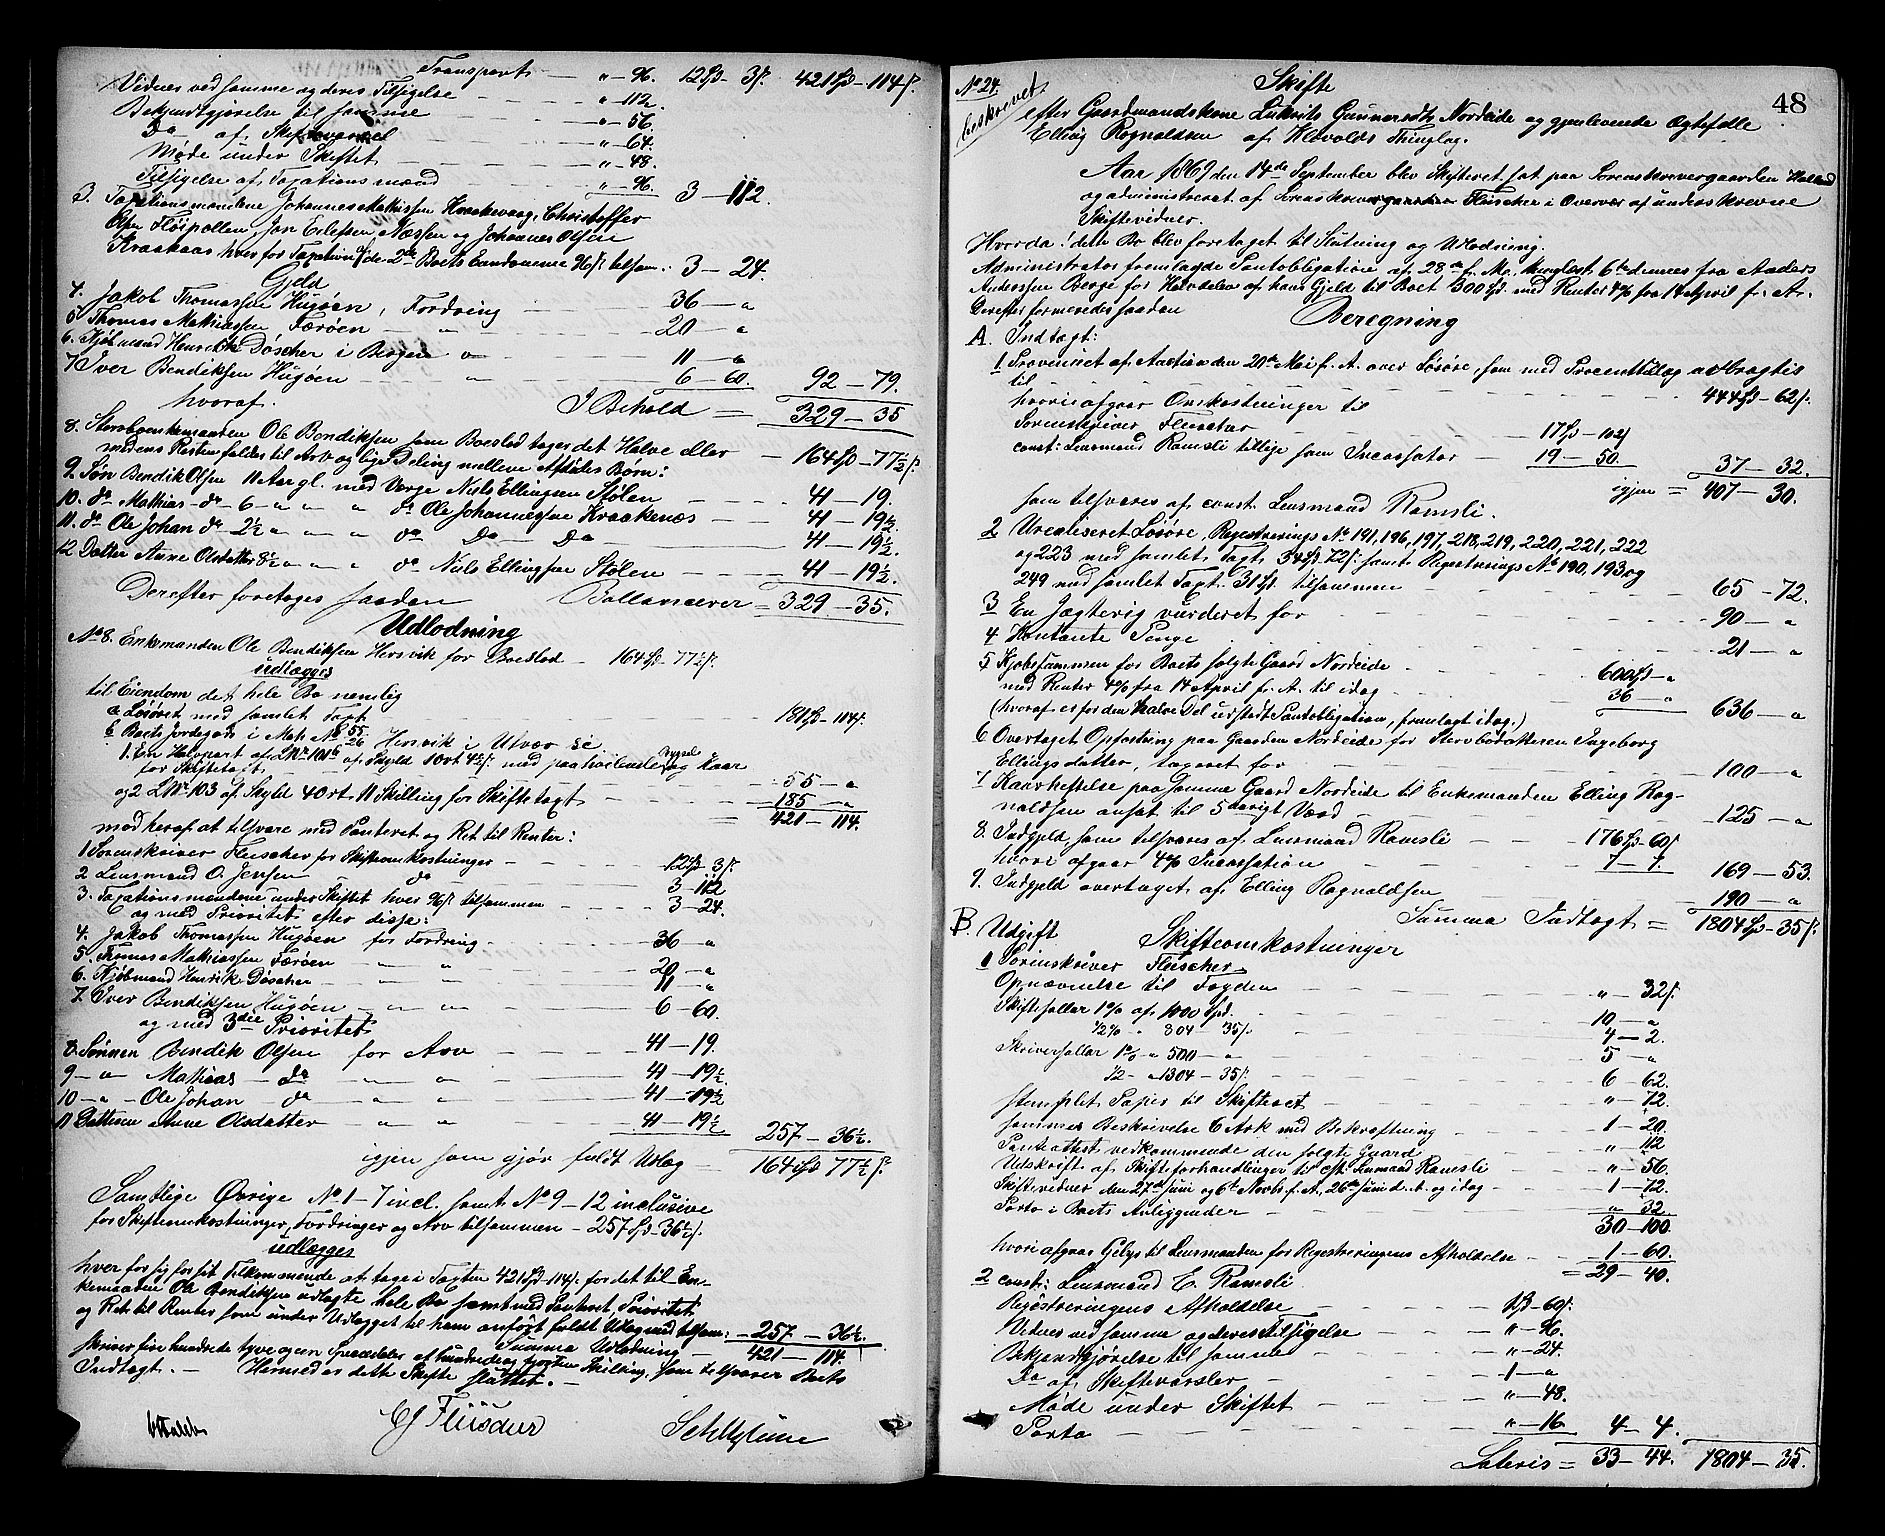 Transport — " — 96. 12 Spd — 3 s. 421 Spd — 114 s.
Vidner ved samme og deres Tilsigelse — " — 112
Bekjendtgjørelse til samme — " — 56.
Do af Skiftevarsel — " — 64.
Møde under Skiftet — " — 48.
Tilsigelse af Taxationsmænd — " — 96. 3 — 112.
3. Taxationsmændene Johannes Mathiassen Kraakevaag, Christoffer
Olsen Fløipollen, Jon Erlefsen Næssen og Johannes Olsen
Kraakaas hver for Taxation af de 2de Boets Eiendomme 96 s. tilsam.: 3 — 24.
Gjeld
4. Jakob Thomassen Hugøen, Fordring — 36 — "
5. Thomas Mathiassen Færøen — " — 20 — "
6. Kjøbmand Henrik Døscher i Bergen " — 11 — "
7. Iver Bendiksen Hugøen — " — 6 — 60. 92 — 79.
I Behold = 329 — 35
hvoraf.
8. Stervboenkemanden Ole Bendiksen som Boeslod tager det Halve eller — 164 Spd — 77½ s.
medens Resten falder til Arv og lige Deling mellem Afdødes Børn:
9. Søn Bendik Olsen 11 Aar gl. med Verge Niels Ellingsen Stølen — 41 — 19.
10. do Mathias — do — 6 — " " " do Ole Johannessen Kraakenæs — 41 — 19½.
11. do Ole Johan do 2½ " " " " do Do — Do — 41 — 19½.
12 Datter Anne Olsdatter 8½ " " " " do Niels Ellingsen Stølen — 41 — 19½.
Derefter foretoges saadan Ballancerer = 329 — 35.
Udlodning
No 8. Enkemanden Ole Bendiksen Hersvik for Boeslod — 164 Spd 77½ s.
udlægges
til Eiendom det hele Bo nemlig
a Løsøret med samlet Taxt — 181 Spd — 114 s.
b Boets Jordegods i Mat. No 55 Hersvik i Utvær se
1. En Halvpart af LNr 101 af Skyld 1 ort 4 s. med paahvilende Bygsel og Kaar
for Skiftetaxt — 55 — "
og 2 LNr 103 af Skyld 4 ort 11 Skilling for Skiftetaxt — 185 — "
= 421 — 114.
mod heraf at tilsvare med Panteret og Ret til Renter:
1 Sorenskriver Fleischer for Skifteomkostninger — 12 Spd 3 s.
2 Lensmand O. Jensen do — 3 — 112
3. Taxationsmændene under Skiftet hver 96 s. tilsammen — 3 — 24.
og med Prioritet efter disse:
4. Jakob Thomassen Hugøen for Fordring — 36 — "
5. Thomas Mathiassen Færøen — " — " — 20 — "
6. Kjøbmand Henrik Døscher — " — " — 11 — "
7. Iver Bendiksen Hugøen — " — " — 6 — 60.
og med 3die Prioritet
8. Sønnen Bendik Olsen for Arv — 41 — 19.
9 — " Mathias — do — " — 41 — 19½
10 — " — Ole Johan — do — " — " — 41 — 19½
11 Datteren Anne Olsdatter — " — " — 41 — 19½ 257 — 36½.
igjen som gjør fuldt Udlæg — 164 Spd 77½ s.
Samtlige Øvrige No 1 — 7 incl. samt No 9 — 12 inclusive
for Skifteomkostninger, Fordringer og Arv tilsammen — 257 Spd — 36½ s.
udlægges
hver for sig for sit Tilkommende at tage i Taxten 421 Spd — 114 s. for det til En-
kemanden Ole Bendiksen udlagte hele Bo samt med Panteret, Prioritet
og Ret til Renter som under Udlægget til ham anført fuldt Udlæg med tilsam: — 257 — 36½.
Summa Udlodning — 421 — 114.
skriver fire hundrede tyve og en Speciedaler et hundrede og fjorten Skilling, som tilsvarer Boets
Indtægt. — Hermed er dette Skifte sluttet. —
Fleischer

48
No 24.
beskrevet
Skifte
efter Gaardmandskone Gunnersdtr. Nordeide og gjenlevende Ægtefælle
Elling Rognaldsen af Alevolds Thinglag.
Aar 1869 den 14de September blev Skifteret sat paa Sorenskrivergaarden
og administreret af Sorenskriver Fleischer i Overvær af underskrevne
Skiftevidner.
Hvorda! dette Bo blev foretaget til Slutning og Udlodning.
Administrator fremlagde Pantobligation af 28de f. M. thinglæst 6te dennes fra Anders
Anderssen Berge for Halvdelen af hans Gjeld til Boet 300 Spd. med Renter 4% fra 14 April f. A.
Derefter formeredes saadan Beregning
A. Indtægt:
1. Provenuet af Auction den 20de Mai f. A. over Løsøre, som med Procenttillæg udbragtes
til — 444 Spd — 62 s.
hvori afgaar Omkostninger til
Sorenskriver Fleischer — 17 Spd — 102 s.
const: Lensmand Ramsli tillige som Incassator — 19 — 50. 37 — 32.
igjen = 407 — 30.
som tilsvares af const. Lensmand Ramsli.
2 Urealiseret Løsøre, Registrerings No 191, 196, 197, 218, 219, 220, 221, 222
og 223 med samlet Taxt 34 Spd. 72 s. samt Registrerings No 190, 193 og
249 med samlet Taxt 31 Spd. tilsammen — 65 — 72.
3 En Jægtevig vurderet for — 90 — "
4 Kontante Penge — 21 — "
5 Kjøbesummen for Boets solgte Gaard Nordeide — 600 Spd — "
med Renter 4% fra 14 April f. A. til idag — 36 — "
(hvoraf er for den halve Del udstedt Pantobligation, fremlagt idag.) 636 — "
6 Overtaget Opfostring paa Gaarden Nordeide for Stervbodatteren Ingeborg
Ellingsdatter, taxeret for — 100 — "
7 Kaarheftelse paa samme Gaard Nordeide til Enkemanden Elling Rog-
naldsen ansat til 5 aarigt Værd — 125 — "
8. Indgjeld, som tilsvares af Lensmand Ramsli — 176 Spd — 60 s.
hvori afgaar 4% Incassation — 7 — 7. 169 — 53.
9. Indgjeld overtaget af Elling Rognaldsen — 190 — "
Summa Indtægt = 1804 Spd — 35 s.
B. Udgift Skifteomkostninger
1 Sorenskriver Fleischer
Opnævnelse til Fogden — " — 32 s.
Skiftesallar 1% af 1000 Spd. — 10 — "
½% " 804 — 35 s. — 4 — 2.
Skriversallar 1% " 500 — " — 5 — "
½ — " 1304 — 35 s. — 6 — 62.
stemplet Papir til Skifteret — " — 72.
sammes Beskrivelse 6 Ark med Bekræftning — 1 — 20.
Panteattest vedkommende den solgte Gaard — " — 112
Udskrift af Skifteforhandlinger til cst. Lensmand Ramsli — " — 56
Skiftevidner den 27de Juni og 6te Novbr. f. A., 26de Juni d. A. og idag — 1 — 72.
Porto i Boets Anliggender — " 32.
30 — 100.
hvori afgaar Gebyr til Lensmanden for Registreringens Afholdelse — 1 — 60.
= 29 — 40.
2 const: Lensmand E. Ramsli
Registreringens Afholdelse — 1 Spd — 60 s.
Vidner ved samme og deres Tilsigelse — " — 96.
Bekjendtgjørelse til samme — " — 24.
Do af Skiftevarsler — 1 — "
Møde under Skiftet — " — 48.
Porto — " — 16 4 — 4.
Lateris = 33 — 44. 1804 — 35.